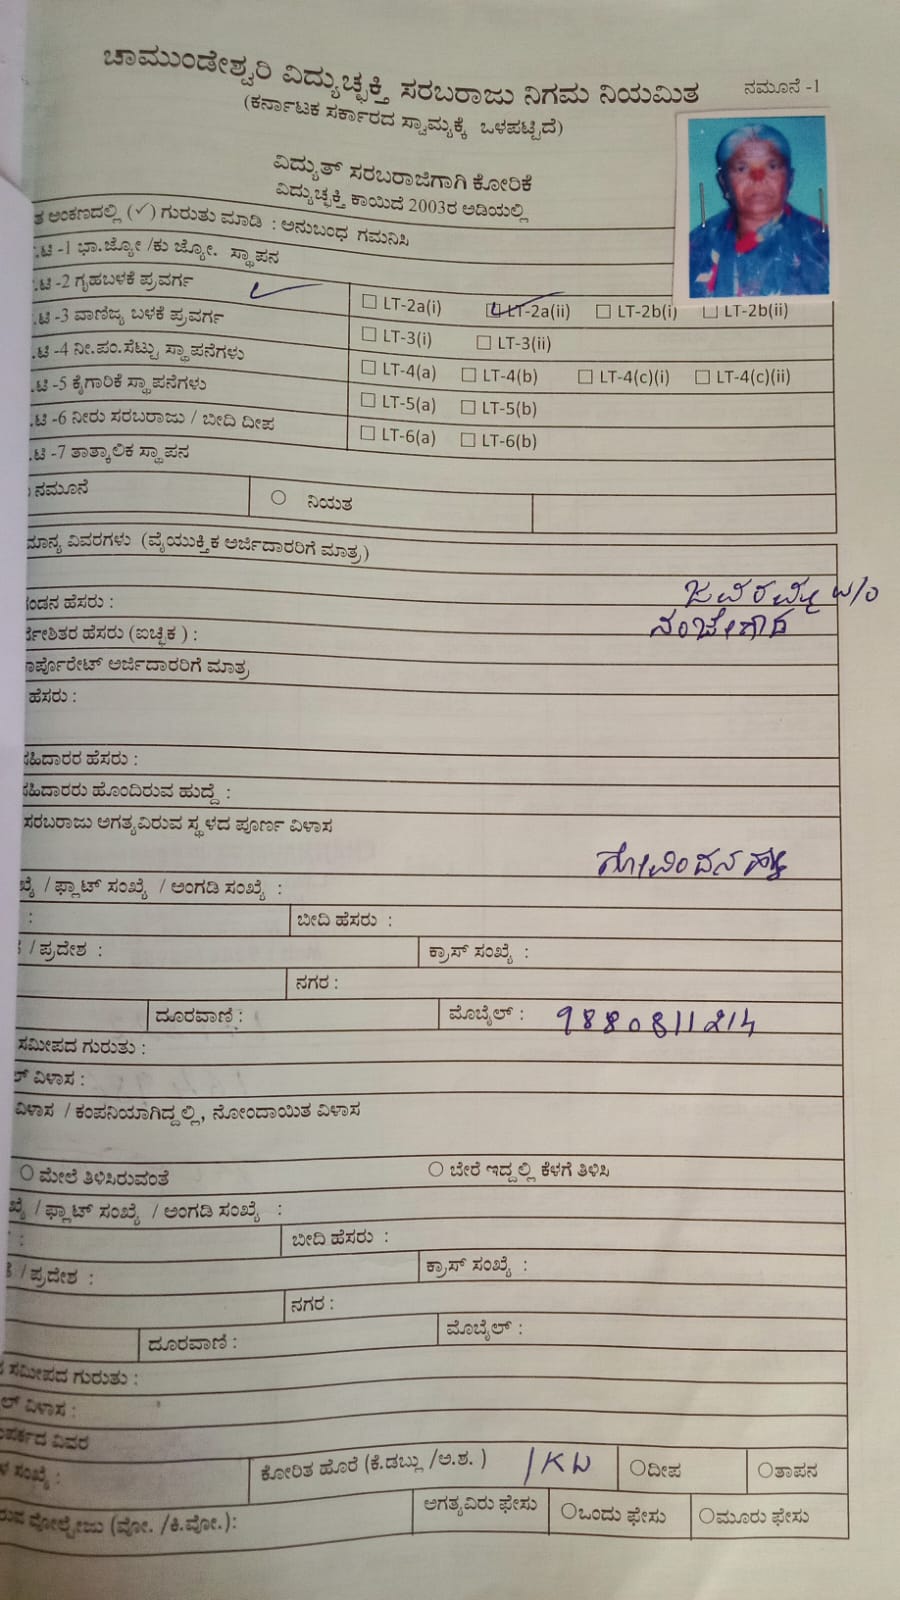 ಚಾಮುಂಡೇಶ್ವರಿ ವಿದ್ಯುಚ್ಛಕ್ತಿ ಸರಬರಾಜು ನಿಗಮ ನಿಯಮಿತ
ನಮೂನೆ -1
(ಕರ್ನಾಟಕ ಸರ್ಕಾರದ ಸ್ವಾಮ್ಯಕ್ಕೆ ಒಳಪಟ್ಟಿದೆ)
ವಿದ್ಯುತ್ ಸರಬರಾಜಿಗಾಗಿ ಕೋರಿಕೆ
ವಿದ್ಯುಚ್ಛಕ್ತಿ ಕಾಯಿದೆ 2003ರ ಅಡಿಯಲ್ಲಿ
ತ ಅಂಕಣದಲ್ಲಿ (✓) ಗುರುತು ಮಾಡಿ : ಅನುಬಂಧ ಗಮನಿಸಿ
.ಟಿ -1 ಭಾ.ಜ್ಯೋ /ಕು ಜ್ಯೋ. ಸ್ಥಾಪನ
.ಟಿ -2 ಗೃಹಬಳಕೆ ಪ್ರವರ್ಗ ✓ ☐ LT-2a(i) ☑ LT-2a(ii) ☐ LT-2b(i) ☐ LT-2b(ii)
.ಟಿ -3 ವಾಣಿಜ್ಯ ಬಳಕೆ ಪ್ರವರ್ಗ ☐ LT-3(i) ☐ LT-3(ii)
.ಟಿ -4 ನೀ.ಪಂ.ಸೆಟ್ಟು ಸ್ಥಾಪನೆಗಳು ☐ LT-4(a) ☐ LT-4(b) ☐ LT-4(c)(i) ☐ LT-4(c)(ii)
.ಟಿ -5 ಕೈಗಾರಿಕೆ ಸ್ಥಾಪನೆಗಳು ☐ LT-5(a) ☐ LT-5(b)
.ಟಿ -6 ನೀರು ಸರಬರಾಜು / ಬೀದಿ ದೀಪ ☐ LT-6(a) ☐ LT-6(b)
.ಟಿ -7 ತಾತ್ಕಾಲಿಕ ಸ್ಥಾಪನ
ನಮೂನೆ ○ ನಿಯತ
ಮಾನ್ಯ ವಿವರಗಳು (ವೈಯುಕ್ತಿಕ ಅರ್ಜಿದಾರರಿಗೆ ಮಾತ್ರ)
ಜವರಮ್ಮ w/o
ಂಡನ ಹೆಸರು : ನಂಜೇಗೌಡ
ರ್ದೇಶಿತರ ಹೆಸರು (ಐಚ್ಛಿಕ ) :
ಾರ್ಪೊರೇಟ್ ಅರ್ಜಿದಾರರಿಗೆ ಮಾತ್ರ
ಹೆಸರು :
ಸಹಿದಾರರ ಹೆಸರು :
ಸಹಿದಾರರು ಹೊಂದಿರುವ ಹುದ್ದೆ :
ಸರಬರಾಜು ಅಗತ್ಯವಿರುವ ಸ್ಥಳದ ಪೂರ್ಣ ವಿಳಾಸ
ಗೋವಿಂದನಹಳ್ಳಿ
ಖ್ಯೆ / ಫ್ಲಾಟ್ ಸಂಖ್ಯೆ / ಅಂಗಡಿ ಸಂಖ್ಯೆ :
: ಬೀದಿ ಹೆಸರು :
/ ಪ್ರದೇಶ : ಕ್ರಾಸ್ ಸಂಖ್ಯೆ :
ನಗರ :
ದೂರವಾಣಿ : ಮೊಬೈಲ್ : 9880811214
ಸಮೀಪದ ಗುರುತು :
ಲ್ ವಿಳಾಸ :
ವಿಳಾಸ / ಕಂಪನಿಯಾಗಿದ್ದಲ್ಲಿ, ನೋಂದಾಯಿತ ವಿಳಾಸ
○ ಮೇಲೆ ತಿಳಿಸಿರುವಂತೆ ○ ಬೇರೆ ಇದ್ದಲ್ಲಿ ಕೆಳಗೆ ತಿಳಿಸಿ
ಖ್ಯೆ / ಫ್ಲಾಟ್ ಸಂಖ್ಯೆ / ಅಂಗಡಿ ಸಂಖ್ಯೆ :
: ಬೀದಿ ಹೆಸರು :
/ ಪ್ರದೇಶ : ಕ್ರಾಸ್ ಸಂಖ್ಯೆ :
ನಗರ :
ದೂರವಾಣಿ : ಮೊಬೈಲ್ :
ಸಮೀಪದ ಗುರುತು :
ಲ್ ವಿಳಾಸ :
ಂಪರ್ಕದ ವಿವರ
ಳ ಸಂಖ್ಯೆ : ಕೋರಿತ ಹೊರೆ (ಕೆ.ಡಬ್ಲು /ಅ.ಶ. ) 1KW ○ದೀಪ ○ತಾಪನ
ರುವ ವೋಲ್ಟೇಜು (ವೋ. /ಕಿ.ವೋ.): ಅಗತ್ಯವಿರು ಫೇಸು ○ಒಂದು ಫೇಸು ○ಮೂರು ಫೇಸು